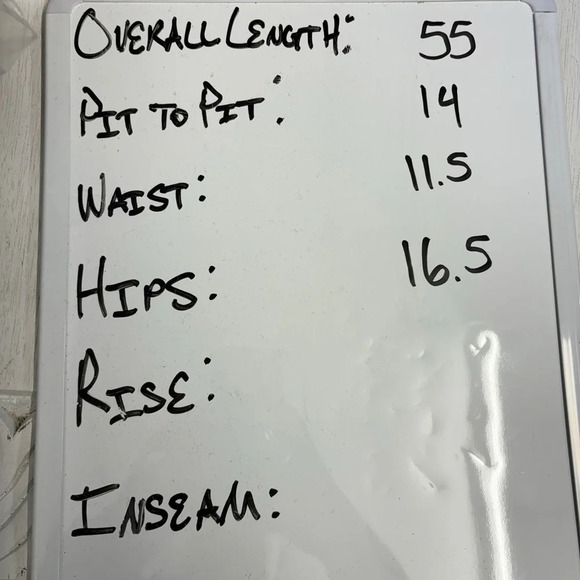 OVERALL LENGTH: 55
PIT TO PIT: 14
WAIST: 11.5
HIPS: 16.5
RISE:
INSEAM: